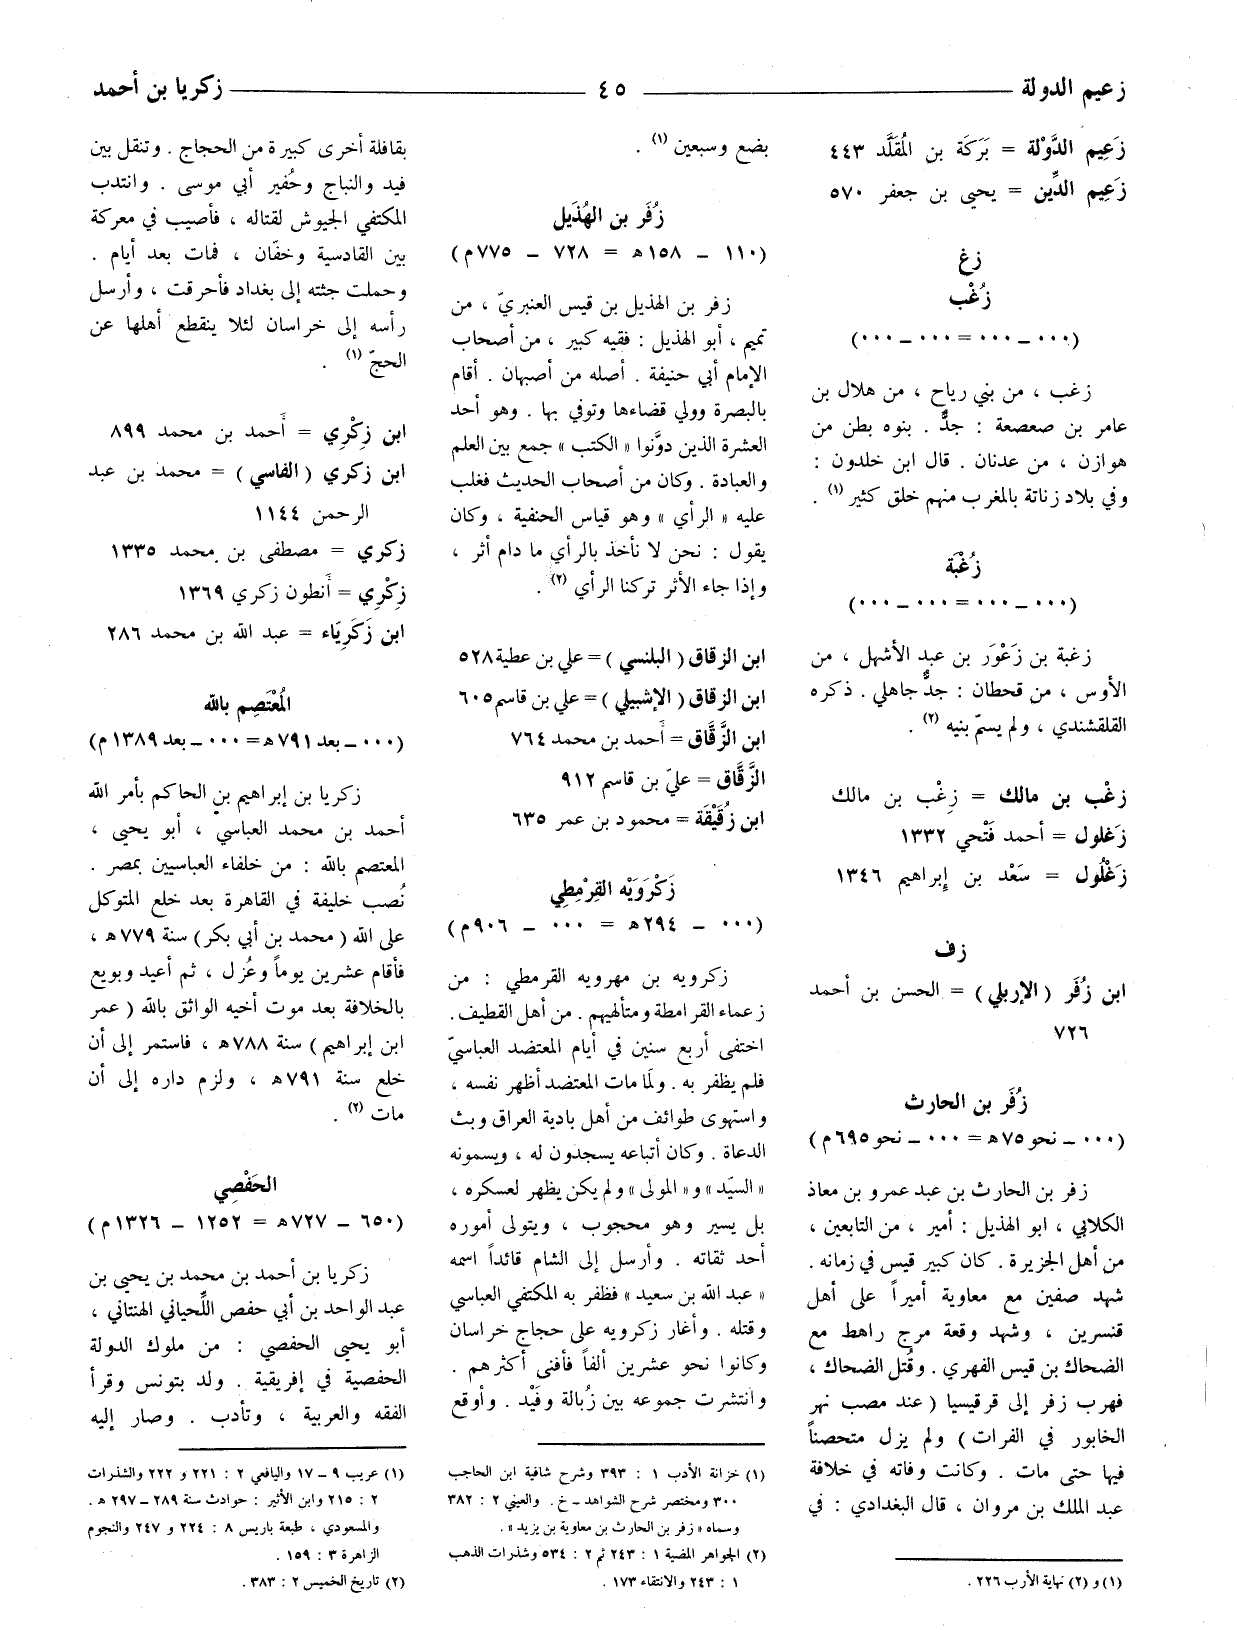 زعيم الدولة
٤٥
زكريا بن أحمد
زَعِيم الدَّوْلة = بَرَكَة بن المُقَلَّد ٤٤٣
زَعِيم الدِّين = يحيى بن جعفر ٥٧٠
زغ
زُغْب
(٠٠٠ ــ ٠٠٠ = ٠٠٠ ــ ٠٠٠)
زغب ، من بني رياح ، من هلال بن
عامر بن صعصعة : جدٌّ . بنوه بطن من
هوازن ، من عدنان . قال ابن خلدون :
وفي بلاد زناتة بالمغرب منهم خلق كثير (١) .
زُغْبَة
(٠٠٠ ــ ٠٠٠ = ٠٠٠ ــ ٠٠٠)
زغبة بن زَعْوَر بن عبد الأشهل ، من
الأوس ، من قحطان : جدٌّ جاهلي . ذكره
القلقشندي ، ولم يسمّ بنيه (٢) .
زغْب بن مالك = زِغْب بن مالك
زَغلول = أحمد فَتْحي ١٣٣٢
زَغْلُول = سَعْد بن إبراهيم ١٣٤٦
زف
ابن زُفَر (الإربلي) = الحسن بن أحمد
٧٢٦
زُفَر بن الحارث
(٠٠٠ ــ نحو ٧٥ هـ = ٠٠٠ ــ نحو ٦٩٥ م)
زفر بن الحارث بن عبد عمرو بن معاذ
الكلابي ، ابو الهذيل : أمير ، من التابعين ،
من أهل الجزيرة . كان كبير قيس في زمانه .
شهد صفين مع معاوية أميراً على أهل
قنسرين ، وشهد وقعة مرج راهط مع
الضحاك بن قيس الفهري . وقُتل الضحاك ،
فهرب زفر إلى قرقيسيا (عند مصب نهر
الخابور في الفرات) ولم يزل متحصناً
فيها حتى مات . وكانت وفاته في خلافة
عبد الملك بن مروان ، قال البغدادي : في
(١) و (٢) نهاية الأرب ٢٢٦ .
بضع وسبعين (١) .
زُفَر بن الهُذَيل
(١١٠ ــ ١٥٨ هـ = ٧٢٨ ــ ٧٧٥ م)
زفر بن الهذيل بن قيس العنبريّ ، من
تميم ، أبو الهذيل : فقيه كبير ، من أصحاب
الإمام أبي حنيفة . أصله من أصبهان . أقام
بالبصرة وولي قضاءها وتوفي بها . وهو أحد
العشرة الذين دوَّنوا « الكتب » جمع بين العلم
والعبادة . وكان من أصحاب الحديث فغلب
عليه « الرأي » وهو قياس الحنفية ، وكان
يقول : نحن لا نأخذ بالرأي ما دام أثر ،
وإذا جاء الأثر تركنا الرأي (٢) .
ابن الزقاق (البلنسي) = علي بن عطية ٥٢٨
ابن الزقاق (الإشبيلي) = علي بن قاسم ٦٠٥
ابن الزَّقَّاق = أحمد بن محمد ٧٦٤
الزَّقَّاق = عليّ بن قاسم ٩١٢
ابن زُقَيْقَة = محمود بن عمر ٦٣٥
زَكْرَوَيْه القِرْمِطِي
(٠٠٠ ــ ٢٩٤ هـ = ٠٠٠ ــ ٩٠٦ م)
زكرويه بن مهرويه القرمطي : من
زعماء القرامطة ومتألهيهم . من أهل القطيف .
اختفى أربع سنين في أيام المعتضد العباسيّ
فلم يظفر به . ولما مات المعتضد أظهر نفسه ،
واستهوى طوائف من أهل بادية العراق وبث
الدعاة . وكان أتباعه يسجدون له ، ويسمونه
« السيّد » و « المولى » ولم يكن يظهر لعسكره ،
بل يسير وهو محجوب ، ويتولى أموره
أحد ثقاته . وأرسل إلى الشام قائداً اسمه
« عبد الله بن سعيد » فظفر به المكتفي العباسي
وقتله . وأغار زكرويه على حجاج خراسان
وكانوا نحو عشرين ألفاً فأفنى أكثرهم .
وانتشرت جموعه بين زُبالة وفَيْد . وأوقع
(١) خزانة الأدب ١ : ٣٩٣ وشرح شافية ابن الحاجب
٣٠٠ ومختصر شرح الشواهد ــ خ . والعيني ٢ : ٣٨٢
وسماه « زفر بن الحارث بن معاوية بن يزيد » .
(٢) الجواهر المضية ١ : ٢٤٣ ثم ٢ : ٥٣٤ وشذرات الذهب
١ : ٢٤٣ والانتقاء ١٧٣ .
بقافلة أخرى كبيرة من الحجاج . وتنقل بين
فيد والنباج وحُفير أبي موسى . وانتدب
المكتفي الجيوش لقتاله ، فأصيب في معركة
بين القادسية وخفّان ، فمات بعد أيام .
وحملت جثته إلى بغداد فأحرقت ، وأرسل
رأسه إلى خراسان لئلا ينقطع أهلها عن
الحجّ (١) .
ابن زِكْرِي = أحمد بن محمد ٨٩٩
ابن زكري (الفاسي) = محمد بن عبد
الرحمن ١١٤٤
زكري = مصطفى بن محمد ١٣٣٥
زِكْرِي = أنطون زكري ١٣٦٩
ابن زَكَرِيَاء = عبد الله بن محمد ٢٨٦
المُعْتَصِم بالله
(٠٠٠ ــ بعد ٧٩١ هـ = ٠٠٠ ــ بعد ١٣٨٩ م)
زكريا بن إبراهيم بن الحاكم بأمر الله
أحمد بن محمد العباسي ، أبو يحيى ،
المعتصم بالله : من خلفاء العباسيين بمصر .
نُصب خليفة في القاهرة بعد خلع المتوكل
على الله (محمد بن أبي بكر) سنة ٧٧٩ هـ ،
فأقام عشرين يوماً وعُزل ، ثم أعيد وبويع
بالخلافة بعد موت أخيه الواثق بالله (عمر
ابن إبراهيم) سنة ٧٨٨ هـ ، فاستمر إلى أن
خلع سنة ٧٩١ هـ ، ولزم داره إلى أن
مات (٢) .
الحَفْصِي
(٦٥٠ ــ ٧٢٧ هـ = ١٢٥٢ ــ ١٣٢٦ م)
زكريا بن أحمد بن محمد بن يحيى بن
عبد الواحد بن أبي حفص اللِّحياني الهنتاني ،
أبو يحيى الحفصي : من ملوك الدولة
الحفصية في إفريقية . ولد بتونس وقرأ
الفقه والعربية ، وتأدب . وصار إليه
(١) عريب ٩ ــ ١٧ واليافعي ٢ : ٢٢١ و ٢٢٢ والشذرات
٢ : ٢١٥ وابن الأثير : حوادث سنة ٢٨٩ ــ ٢٩٧ هـ .
والمسعودي ، طبعة باريس ٨ : ٢٢٤ و ٢٤٧ والنجوم
الزاهرة ٣ : ١٥٩ .
(٢) تاريخ الخميس ٢ : ٣٨٣ .